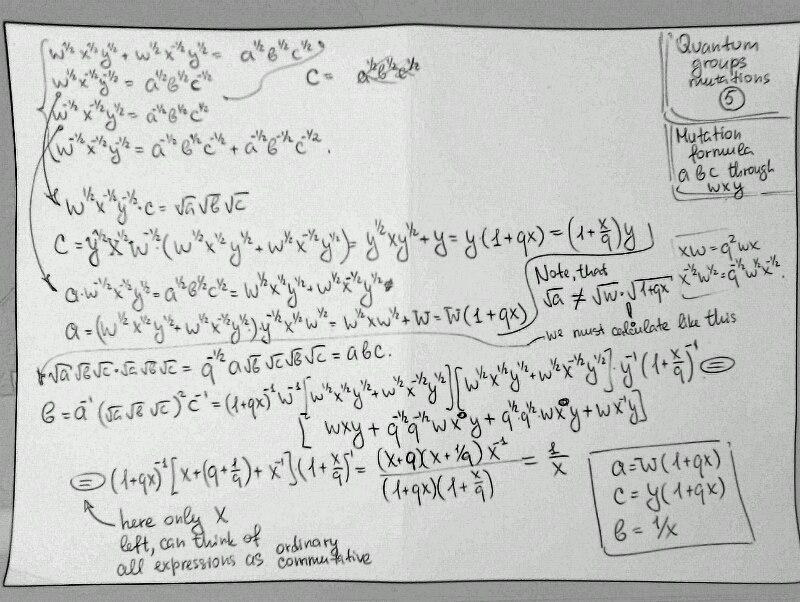 w^{1/2} x^{1/2} y^{1/2} + w^{1/2} x^{-1/2} y^{1/2} = a^{1/2} b^{1/2} c^{1/2}
w^{1/2} x^{-1/2} y^{-1/2} = a^{1/2} b^{1/2} c^{-1/2}
C =
w^{-1/2} x^{-1/2} y^{1/2} = a^{-1/2} b^{1/2} c^{1/2}
w^{-1/2} x^{-1/2} y^{-1/2} = a^{-1/2} b^{1/2} c^{-1/2} + a^{-1/2} b^{-1/2} c^{-1/2}.
Quantum
groups
mutations
5
Mutation
formula
a b c through
wxy
w^{1/2} x^{-1/2} y^{-1/2} · c = √a √b √c
C = y^{1/2} x^{1/2} w^{-1/2} · (w^{1/2} x^{1/2} y^{1/2} + w^{1/2} x^{-1/2} y^{1/2}) = y^{1/2} x y^{1/2} + y = y(1+qx) = (1+x/q)y
a · w^{-1/2} x^{-1/2} y^{1/2} = a^{1/2} b^{1/2} c^{1/2} = w^{1/2} x^{1/2} y^{1/2} + w^{1/2} x^{-1/2} y^{1/2}
a = (w^{1/2} x^{1/2} y^{1/2} + w^{1/2} x^{-1/2} y^{1/2}) · y^{-1/2} x^{1/2} w^{1/2} = w^{1/2} x w^{1/2} + w = w(1+qx)
Note, that
√a ≠ √w · √1+qx
we must calculate like this
xw = q² wx
x^{-1/2} w^{1/2} = q^{-1/2} w^{1/2} x^{-1/2}.
√a √b √c · √a √b √c = q^{-1/2} a √b √c √b √c = abc.
b = a^{-1} (√a √b √c)² c^{-1} = (1+qx)^{-1} w^{-1} [w^{1/2} x^{1/2} y^{1/2} + w^{1/2} x^{-1/2} y^{1/2}] [w^{1/2} x^{1/2} y^{1/2} + w^{1/2} x^{-1/2} y^{1/2}] · y^{-1} (1+x/q)^{-1} =
[wxy + q^{-1/2} q^{-1/2} w x⁰ y + q^{1/2} · q^{1/2} w x⁰ y + w x^{-1} y]
= (1+qx)^{-1} [x + (q + 1/q) + x^{-1}] (1+x/q)^{-1} = (x+q)(x+1/q) x^{-1} / (1+qx)(1+x/q) = 1/x
here only x
left, can think of
all expressions as ordinary commutative
a = w(1+qx)
c = y(1+qx)
b = 1/x